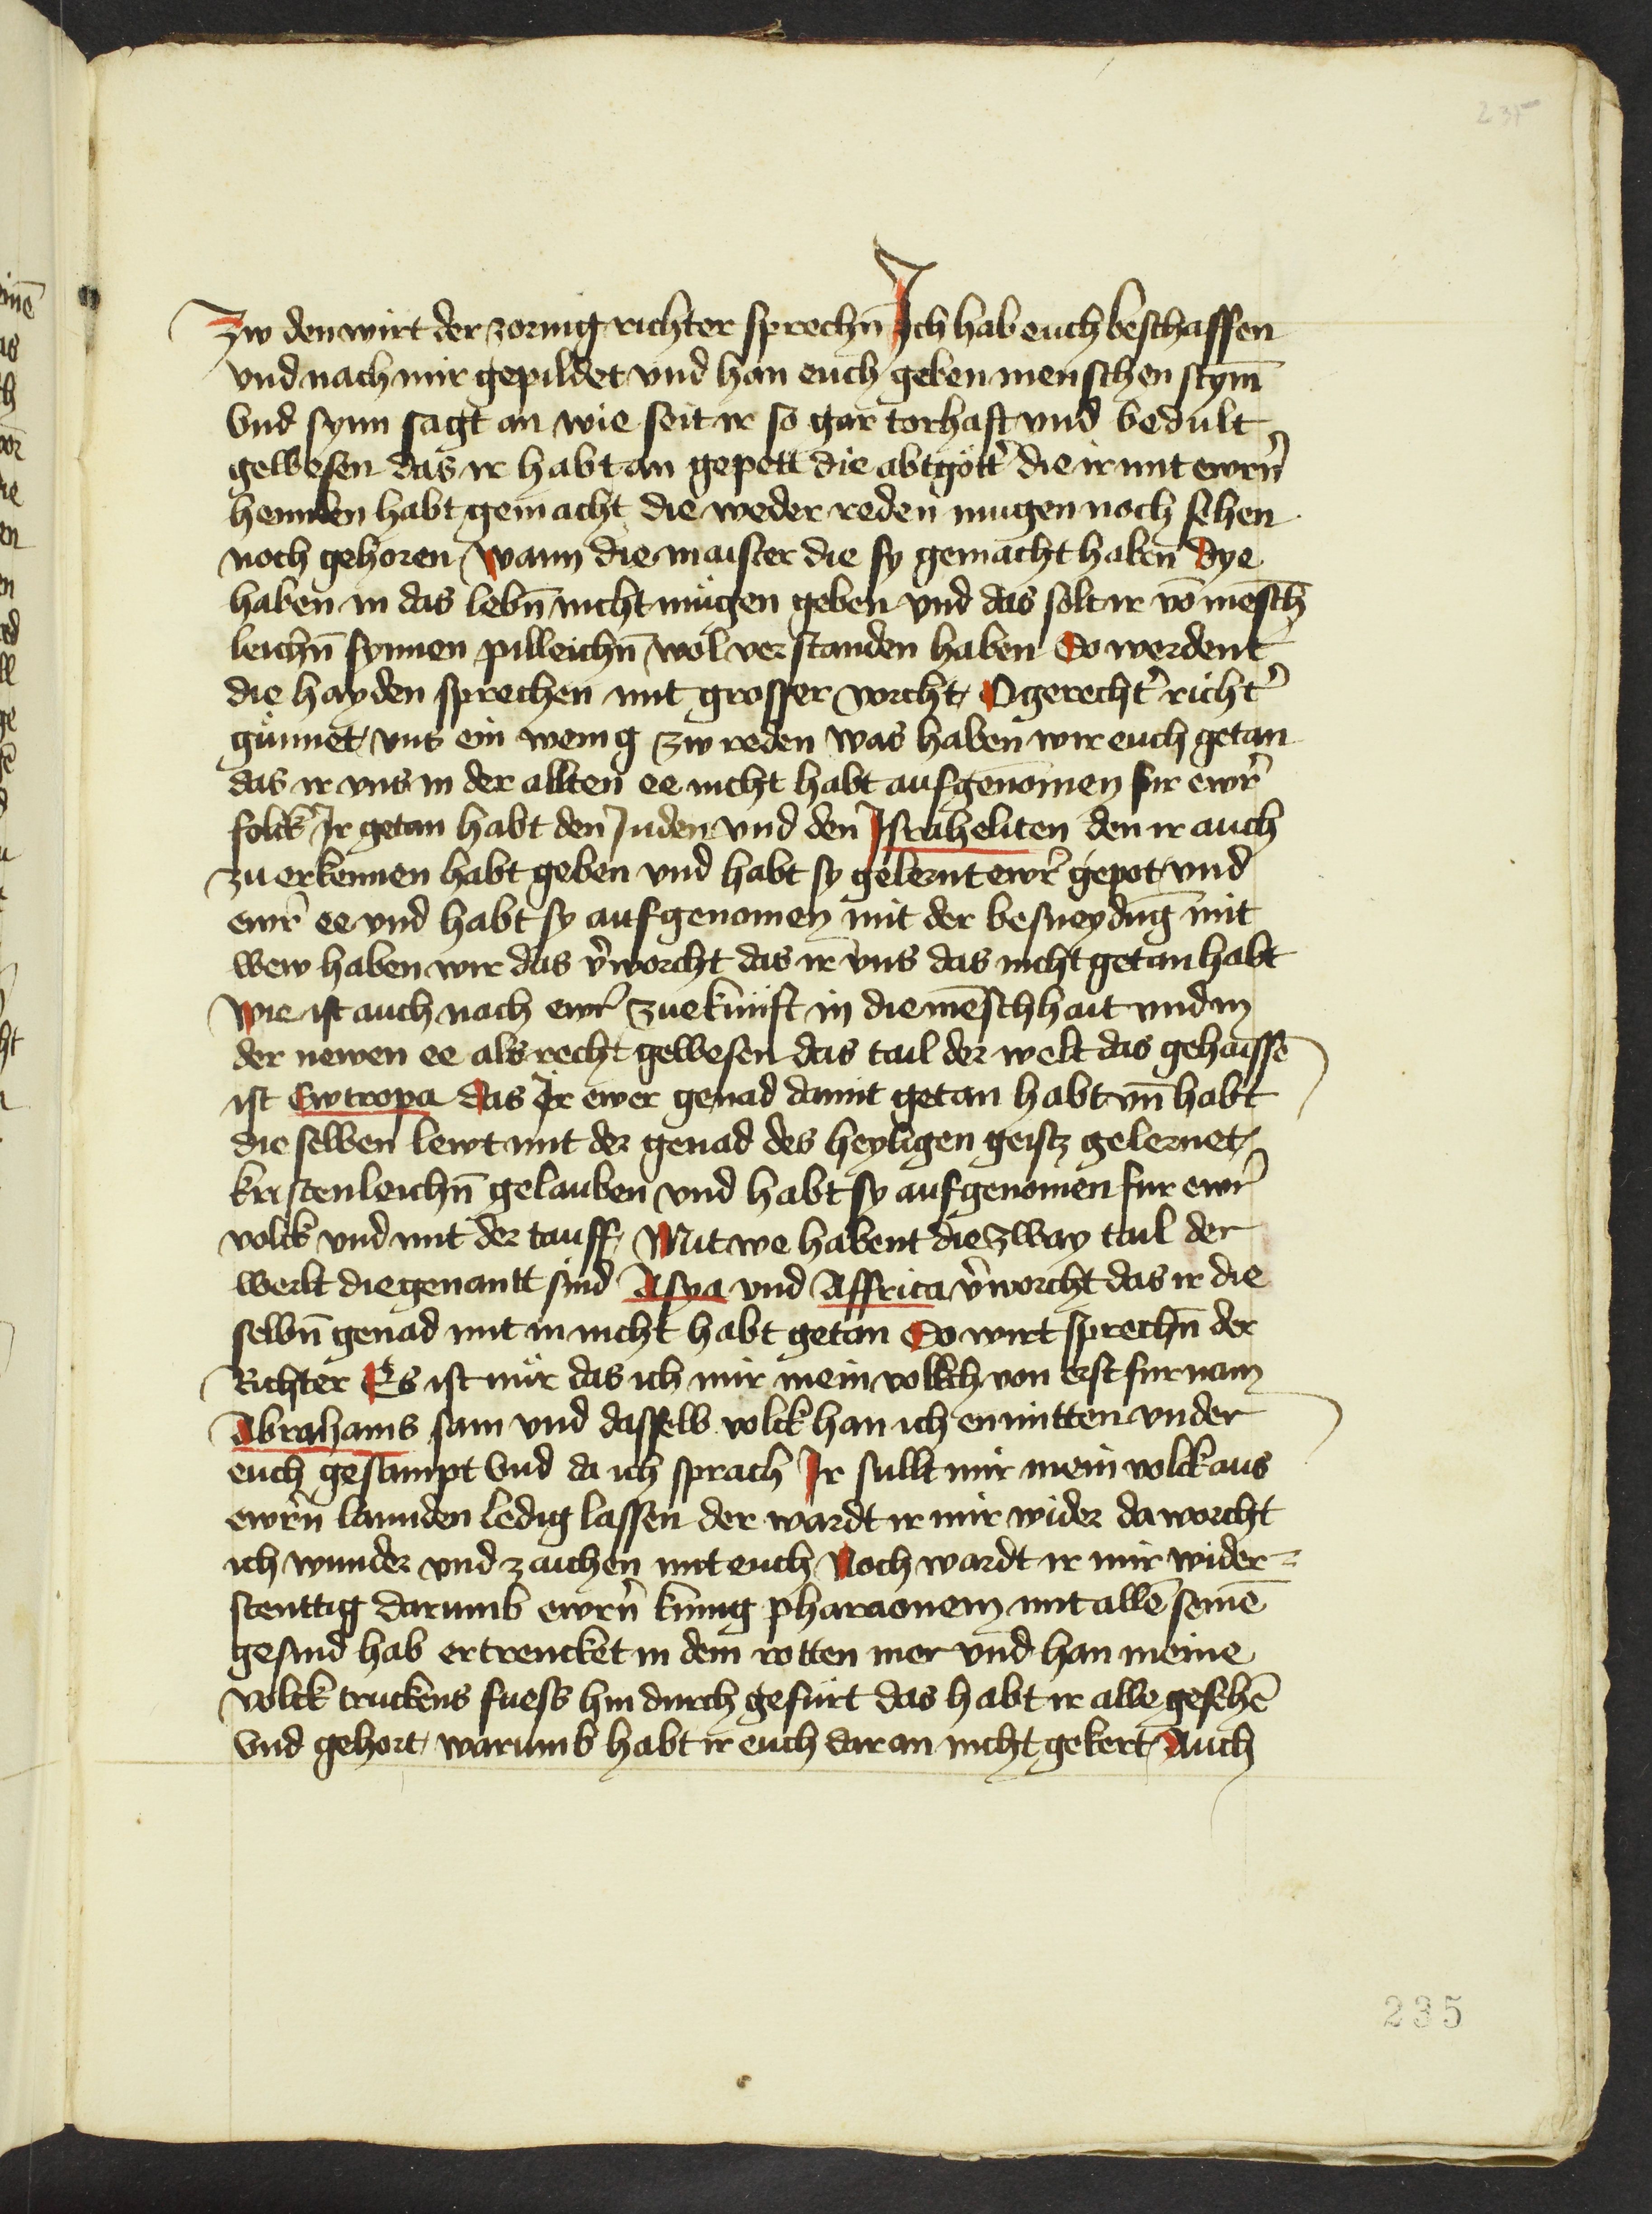 235
Zw den wirt der zornig richter sprechn̄ Ich hab euch beschaffen
vnd nach mir gepildet vnd han euch geben menschen stym̄
Vnd synn sagt an wie seit ir so gar torhaft vnd bedult
gewesen das ir habt an gepett die abtgött' die ir mit ewrn̄
hennden habt gemacht die weder reden mugen noch sehen
noch gehoren Wann die maister die sy gemacht habn̄ Dye
haben in das lebn̄ nicht mugen geben vnd das solt ir vō mēsch
leichn̄ synnen pilleichn̄ wol verstanden haben So werdent
die hayden sprechen mit grosser vorcht O gerecht' richt'
günnet vns ein wenig zw reden was haben wir euch getan
das ir vns in der allten ee nicht habt aufgenōmen fur ewr'
folck Ir getan habt den Juden vnd den Israheliten den ir auch
zu erkennen habt geben vnd habt sy gelernt ewr' gepot vnd
ewr' ee vnd habt sy aufgenomen mit der besneydūg mit
wew haben wir das v'worcht das ir vns das nicht getan habt
Wie ist auch nach ewr' zuekunft in die mēschhait vnd in
der newen ee als recht gewesen das tail der welt das gehaissē
ist Ewropa das Ir ewer genad damit getan habt vn̄ habt
die selben lewt mit der genad des heyligen geistz gelernet
kristenleichn̄ gelauben vnd habt sy aufgenomen fur ewr'
volck vnd mit der tauff Mit we habent die zway tail der
werlt die genantt sind Asya vnd Affrica v'worcht das ir die
selbn̄ genad mit in nicht habt getan So wirt sprechn̄ der
Richter Es ist mür das ich mir mein vollkch von erst fur nam
Abrahams sam vnd dasselb volck han ich enmitten vnder
euch gestimpt Vnd da ich sprach Ir sullt mir mein volck aus
ewrn̄ lannden ledig lassen der wardt ir mir wider da worcht
ich wunder vnd zaichen mit euch Noch wardt ir mir wider=
stenttig darumb ewrn̄ kunig pharaonem mit allē seinē
gesind hab ertrencket in dem rotten mer vnd han meine
volck truckens fuess hin durch gefürt das habt ir alle gesehē
Vnd gehort warumb habt ir euch daran nicht gekert Auch
235